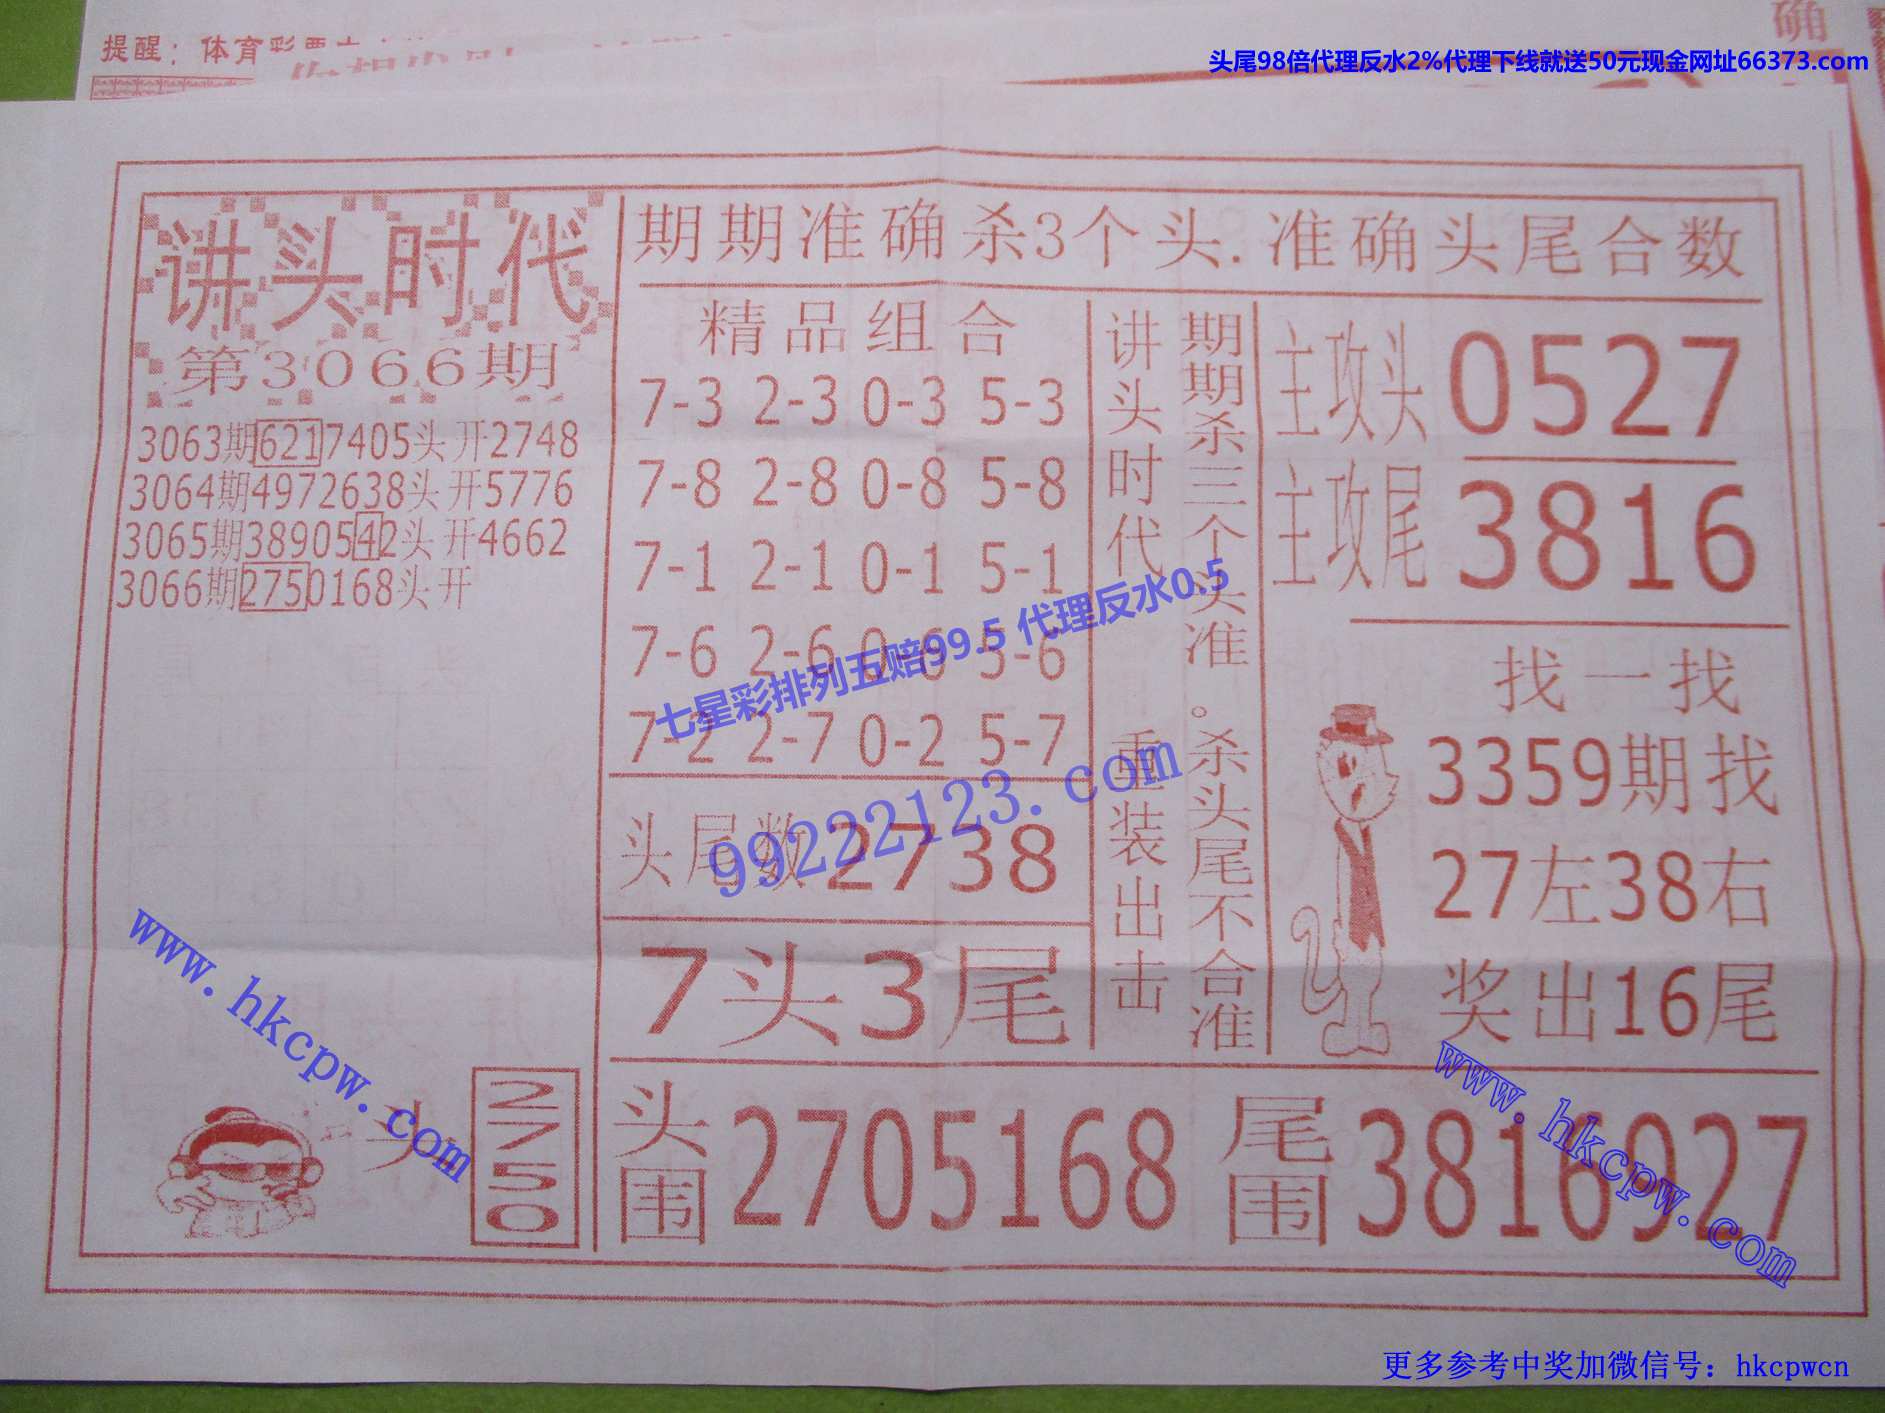 提醒：体育彩票
确
头尾98倍代理反水2%代理下线就送50元现金网址66373.com
讲头时代
第3066期
3063期6217405头开2748
3064期4972638头开5776
3065期3890542头开4662
3066期2750168头开
头
2750
期期准确杀3个头.准确头尾合数
精品组合
7-3 2-3 0-3 5-3
7-8 2-8 0-8 5-8
7-1 2-1 0-1 5-1
7-6 2-6 0-6 5-6
7-2 2-7 0-2 5-7
头尾数2738
7头3尾
讲头时代 重装出击
期期杀三个头准。杀头尾不合准
主攻头0527
主攻尾3816
找一找
3359期找
27左38右
奖出16尾
头围2705168 尾围3816927
七星彩排列五赔99.5 代理反水0.5
99222123.com
www.hkcpw.com
www.hkcpw.com
更多参考中奖加微信号：hkcpwcn